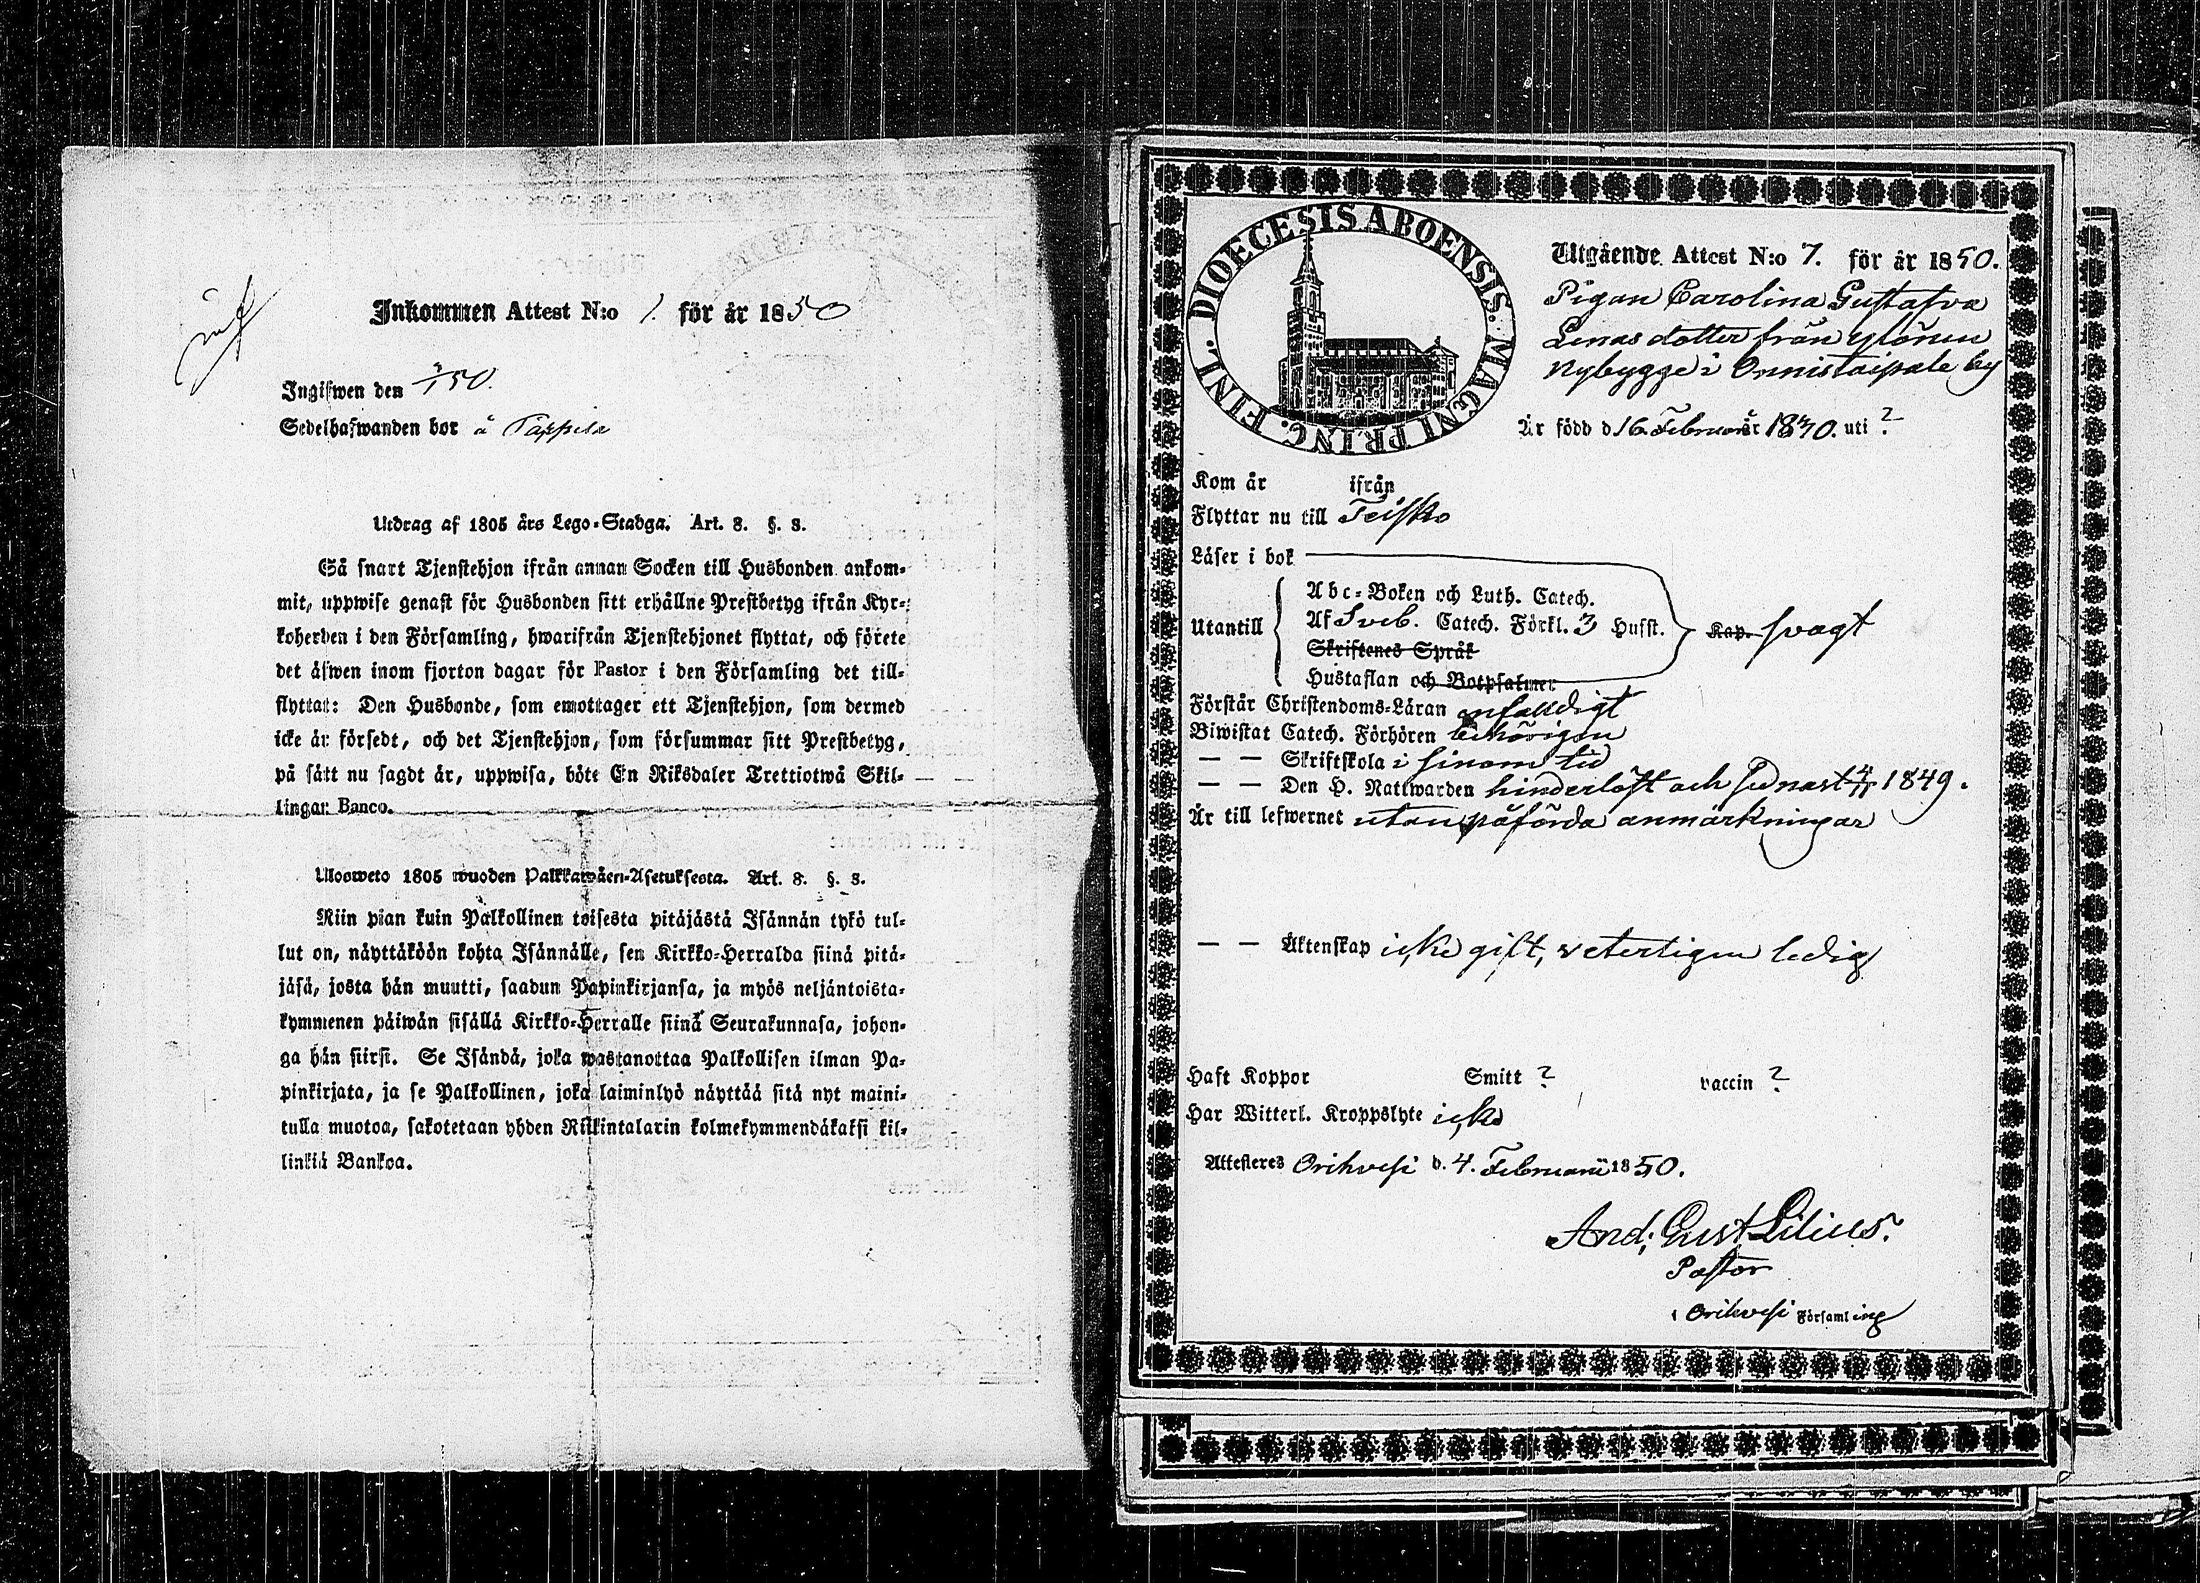 Inkommen Attest N:o 1. för år 1850
Ingifwen den
Sedelhafwanden bor å Pappila
Utdrag af 1805 års Lego-Stadga. Art. 8. §. 8.
Så snart Tjenstehjon ifrån annan Socken till Husbonden ankom-
mit, uppwise genast för Husbonden sitt erhållne Prestbetyg ifrån Kyr-
koherden i den Församling, hwarifrån Tjenstehjonet flyttat, och förete
det äfwen inom fjorton dagar för Pastor i den Församling det till-
flyttat: Den Husbonde, som emottager ett Tjenstehjon, som dermed
icke är försedt, och det Tjenstehjon, som försummar sitt Prestbetyg,
på sätt nu sagdt är, uppwisa, böte En Riksdaler Trettiotwå Skil-
lingar Banco.
Uloosweto 1805 wuoden Palkkawäen-Asetuksesta. Art. 8. §. 8.
Niin pian kuin Palkollinen toisesta pitäjästä Isännän tykö tul-
lut on, näyttäköön kohta Isännälle, sen Kirkko-Herralda siinä pitä-
jäsä, josta hän muutti, saadun Papinkirjansa, ja myös neljäntoista-
kymmenen päiwän sisällä Kirkko-Herralle siinä Seurakunnasa, johon-
ga hän siirsi. Se Isändä, joka wastanottaa Palkollisen ilman Pa-
pinkirjata, ja se Palkollinen, joka laiminlyö näyttää sitä nyt maini-
tulla muotoa, sakotetaan yhden Riikintalarin kolmekymmendäkaksi kil-
linkiä Bankoa.
DIOECESIS ABOENSIS. MAGNI PRINC. FINL.
Utgående Attest N:o 7. för år 1850.
Pigan Carolina Gustafva
Lenasdotter från Ylönen
Nybygge i Onnistaipale by
Är född d 16. Februarii år 1830. uti ?
Kom år ifrån
Flyttar nu till Teisko
Läser i bok
Utantill
Abc-Boken och Luth. Catech.
Af Sveb. Catech. Förkl. 3 Hufst. Kap. svagt
Skriftenes Språk
Hustaflan och Botpsalmer
Förstår Christendoms-Läran enfaldigt
Biwistat Catech. Förhören behörigen
— — Skriftskola i sinom tid
— — Den H. Nattwarden hinderlöst och sednast 1849.
Är till lefwernet utan påförda anmärkningar
— — Äktenskap icke gift, veterligen ledig
Haft Koppor Smitt ? vaccin ?
Har Witterl. Kroppslyte icke
Attesteres Orihvesi d. 4. Februarii 1850.
And. Gust Lilius.
Pastor
i Orihvesi Församling